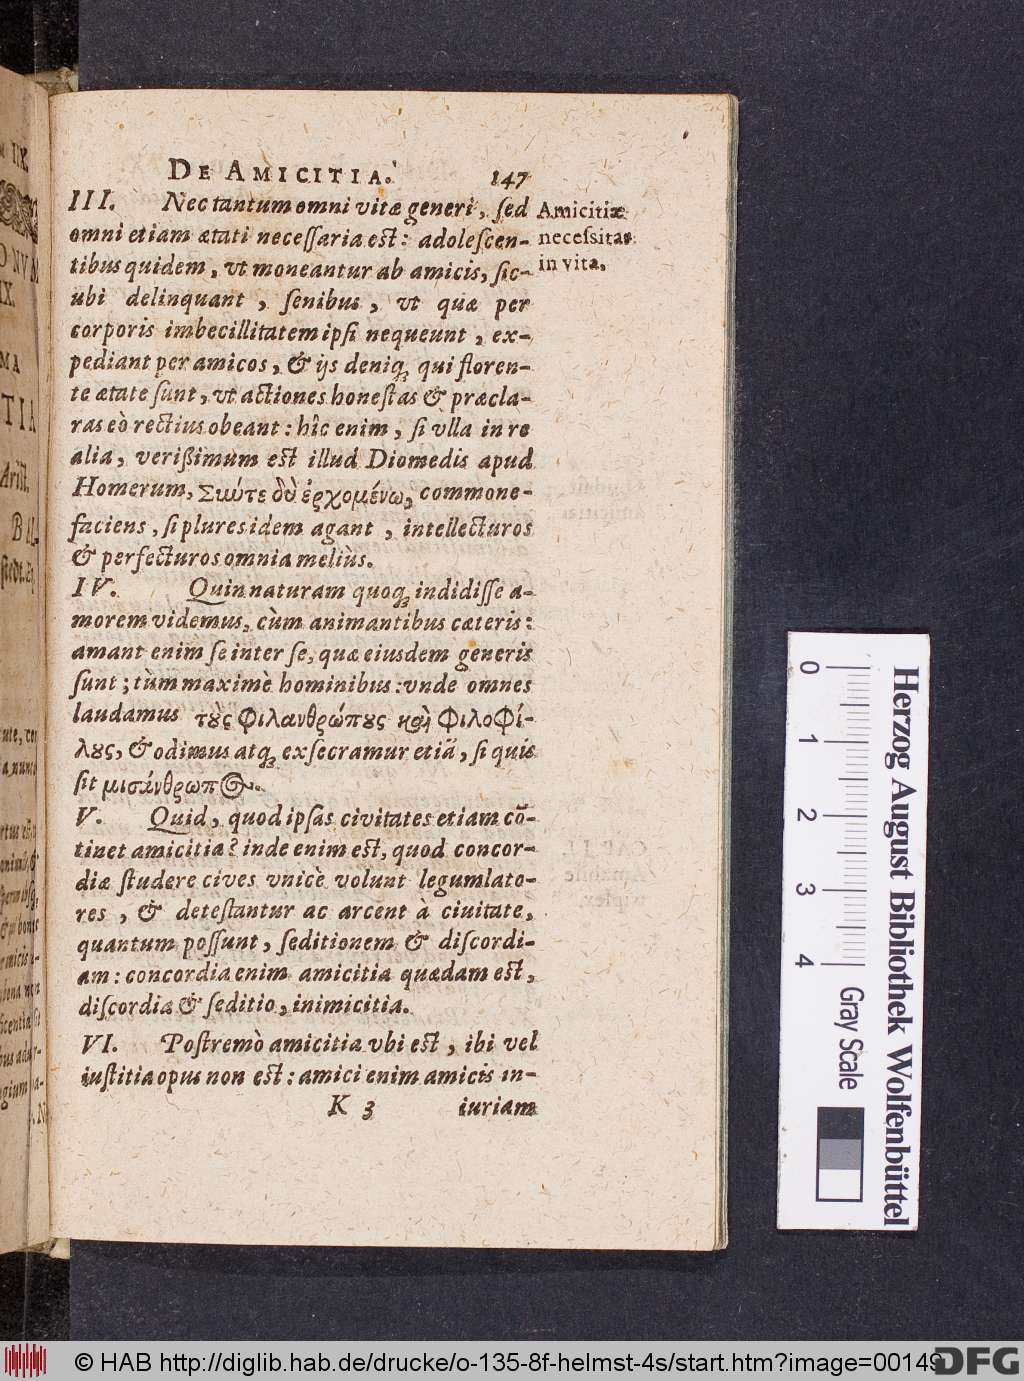 DE AMICITIA. 147
III. Nec tantum omni vitæ generi, ſed
omni etiam ætati neceſſaria eſt: adoleſcen-
tibus quidem, vt moneantur ab amicis, ſic-
ubi delinquant, ſenibus, vt quæ per
corporis imbecillitatem ipſi nequeunt, ex-
pediant per amicos, & ijs deniq́, qui floren-
te ætate ſunt, vt actiones honeſtas & præcla-
ras eò rectius obeant: hîc enim, ſi vlla in re
alia, verißimum eſt illud Diomedis apud
Homerum, Σιωύτε δύ' ἐρχομένω, commone-
faciens, ſi plures idem agant, intellecturos
& perfecturos omnia meliùs.
Amicitiæ
neceſsitas
in vita.
IV. Quin naturam quoq́, indidiſſe a-
morem videmus, cùm animantibus cæteris:
amant enim ſe inter ſe, quæ eiusdem generis
ſunt; tùm maximè hominibus: vnde omnes
laudamus τοὺς φιλανθρώπους καὶ φιλοφί-
λους, & odimus atq́, exſecramur etiã, ſi quis
ſit μισάνθρωπος.
V. Quid, quod ipſas civitates etiam cõ-
tinet amicitia? inde enim eſt, quod concor-
diæ ſtudere cives vnicè volunt legumlato-
res, & deteſtantur ac arcent à ciuitate,
quantum poſſunt, ſeditionem & diſcordi-
am: concordia enim amicitia quædam eſt,
diſcordia & ſeditio, inimicitia.
VI. Poſtremò amicitia vbi eſt, ibi vel
iuſtitia opus non eſt: amici enim amicis in-
K 3 iuriam
0 1 2 3 4
Gray Scale
Herzog August Bibliothek Wolfenbüttel
© HAB http://diglib.hab.de/drucke/o-135-8f-helmst-4s/start.htm?image=00149
DFG